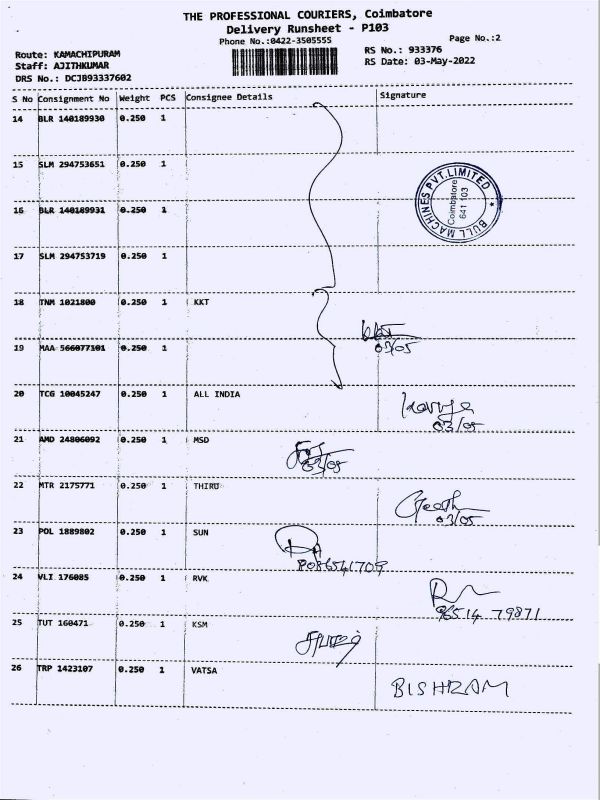 THE PROFESSIONAL COURIERS, Coimbatore
Delivery Runsheet - P103
Phone No.:0422-3505555
Page No.:2
Route: KAMACHIPURAM
RS No.: 933376
Staff: AJITHKUMAR
RS Date: 03-May-2022
DRS No.: DCJB93337602
S No Consignment No Weight PCS Consignee Details Signature
14 BLR 140189930 0.250 1
15 SLM 294753651 0.250 1
BULL MACHINES PVT.LIMITED
Coimbatore
641 103
16 BLR 140189931 0.250 1
17 SLM 294753719 0.250 1
18 TNM 1021800 0.250 1 KKT
03/05
19 MAA 566077101 0.250 1
20 TCG 10045247 0.250 1 ALL INDIA
03/05
21 AMD 24806092 0.250 1 MSD
03/05
22 MTR 2175771 0.250 1 THIRU
03/05
23 POL 1889802 0.250 1 SUN
24 VLI 176085 0.250 1 RVK
96514 79871
25 TUT 160471 0.250 1 KSM
26 TRP 1423107 0.250 1 VATSA
BISHRAM